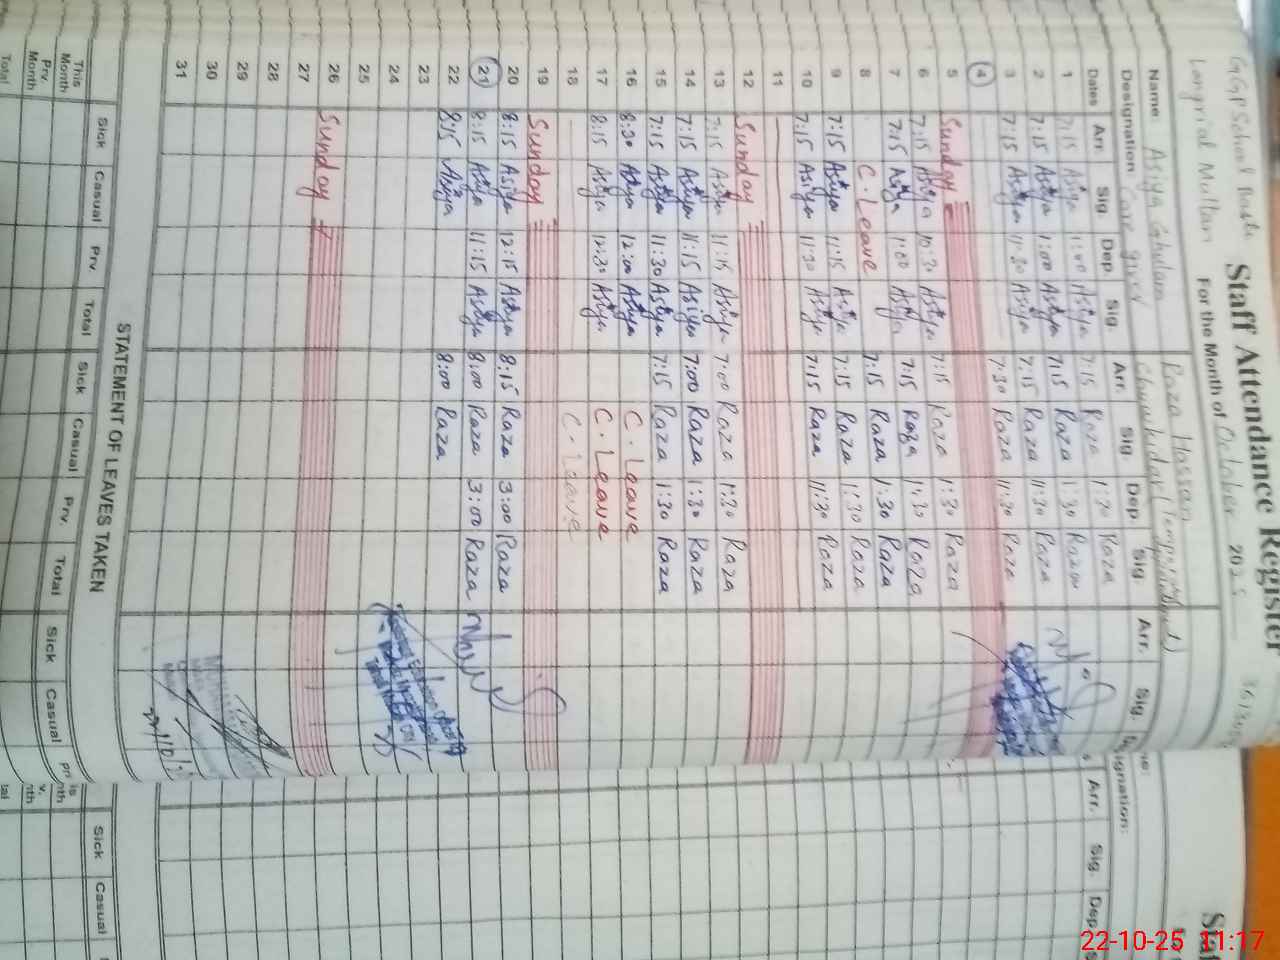 GGPSchool Basti Staff Attendance Register
Langrial Multan For the Month of October 2025
Name: Asiya Ghulam Raza Hassan
Designation: Care giver Chowkidar
Dates Arr. Sig. Dep. Sig. Arr. Sig. Dep. Sig. Arr. Sig.
1 7:15 Asiya 1:00 Asiya 7:15 Raza 1:30 Raza
2 7:15 Asiya 1:00 Asiya 7:15 Raza 1:30 Raza
3 7:15 Asiya 11:30 Asiya 7:15 Raza 11:30 Raza
4 7:30 Raza 11:30 Raza
5 Sunday
6 7:15 Asiya 10:30 Asiya 7:15 Raza 1:30 Raza
7 7:15 Asiya 1:00 Asiya 7:15 Raza 1:30 Raza
8 C. Leave 7:15 Raza 1:30 Raza
9 7:15 Asiya 11:15 Asiya 7:15 Raza 1:30 Raza
10 7:15 Asiya 11:30 Asiya 7:15 Raza 11:30 Raza
11
12 Sunday
13 7:15 Asiya 11:15 Asiya 7:00 Raza 1:30 Raza
14 7:15 Asiya 11:15 Asiya 7:00 Raza 1:30 Raza
15 7:15 Asiya 11:30 Asiya 7:15 Raza 1:30 Raza
16 8:30 Asiya 12:00 Asiya C. Leave
17 8:15 Asiya 12:30 Asiya C. Leave
18 C. Leave
19 Sunday
20 8:15 Asiya 12:15 Asiya 8:15 Raza 3:00 Raza
21 8:15 Asiya 11:15 Asiya 8:00 Raza 3:00 Raza
22 8:15 Asiya 8:00 Raza
23
24
25
26 Sunday
27
28
29
30
31
STATEMENT OF LEAVES TAKEN
Sick Casual Prv. Total Sick Casual Prv. Total Sick Casual
This Month
Prv. Month
Total
Arr. Sig. Dep.
Sick Casual
22-10-25 11:17